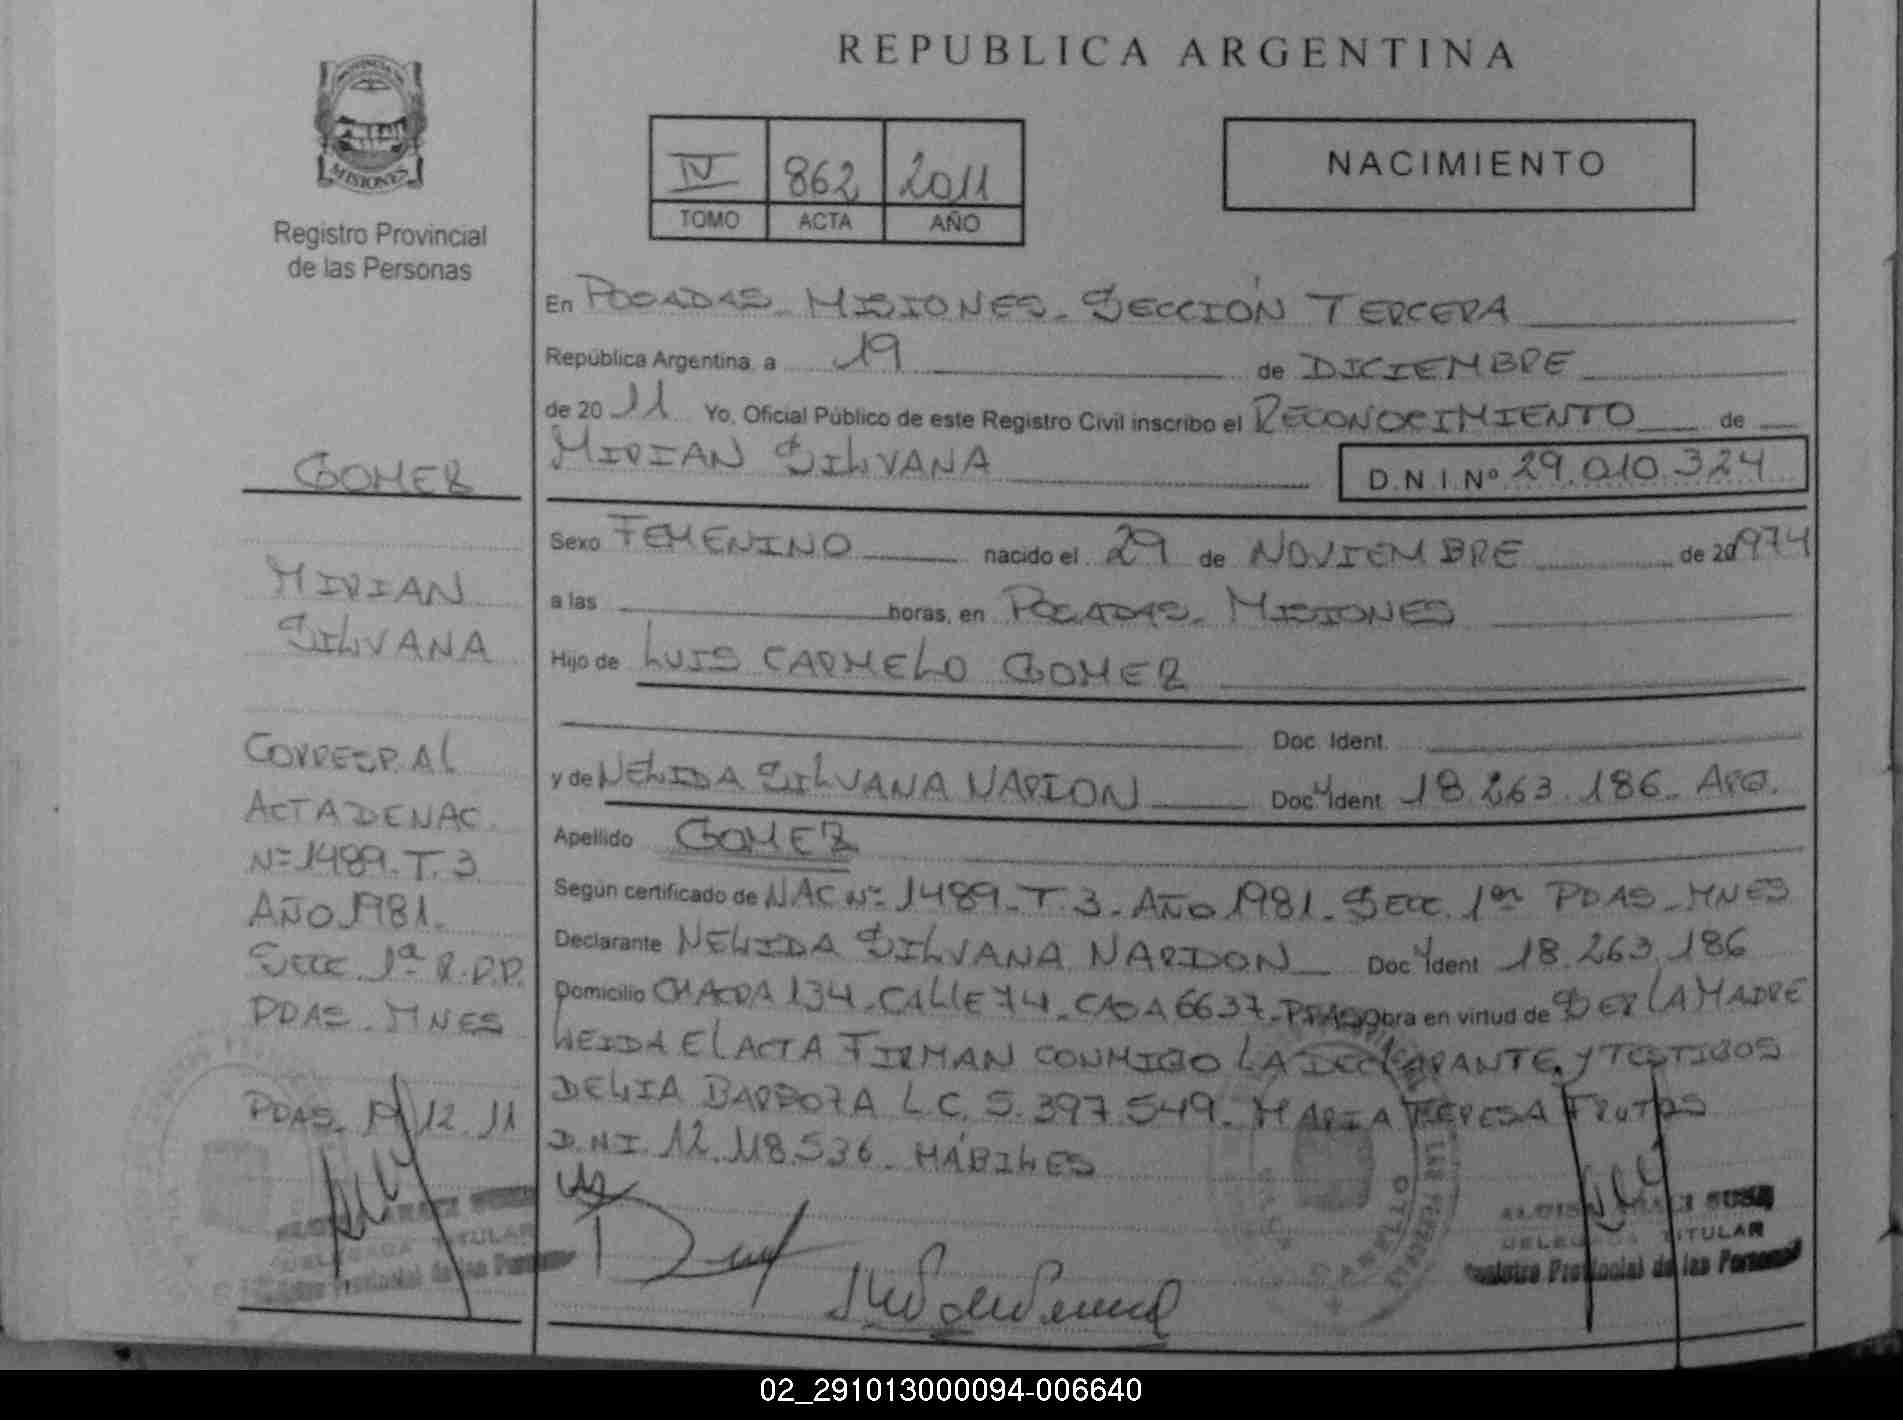 REPUBLICA ARGENTINA
PROVINCIA DE
MISIONES
Registro Provincial
de las Personas
IV 862 2011
TOMO ACTA AÑO
NACIMIENTO
En POSADAS - MISIONES - SECCIÓN TERCERA
República Argentina, a 19 de DICIEMBRE
de 2011 Yo, Oficial Público de este Registro Civil inscribo el RECONOCIMIENTO de
MIRIAN SILVANA D.N.I. Nº 29.010.324
Sexo FEMENINO nacido el 29 de NOVIEMBRE de 20 1974
a las horas, en POSADAS - MISIONES
Hijo de LUIS CARMELO GOMEZ
Doc. Ident.
y de NELIDA SILVANA NARDON Doc. Ident 18.263.186 - ARG.
Apellido GOMEZ
Según certificado de NAC Nº 1489 - T. 3 - AÑO 1981 - SECC. 1ª PDAS - MNES
Declarante NELIDA SILVANA NARDON Doc Ident 18.263.186
Domicilio CHACRA 134 - CALLE 74 - CASA 6637 - PDAS obra en virtud de SER LA MADRE
LEIDA EL ACTA FIRMAN CONMIGO LA DECLARANTE Y TESTIGOS
DELIA BARBOZA L.C. 5.397.549 - MARIA TERESA FRUTOS
D.N.I. 12.118.536 - HÁBILES
GOMEZ
MIRIAN
SILVANA
CORRESP. AL
ACTA DE NAC.
Nº 1489 - T. 3
AÑO 1981 -
SECC. 1ª R.P.P.
PDAS - MNES
PDAS - 19/12.11
DELEGADA TITULAR
Registro Provincial de las Personas
DELEGADA TITULAR
Registro Provincial de las Personas
02_291013000094-006640